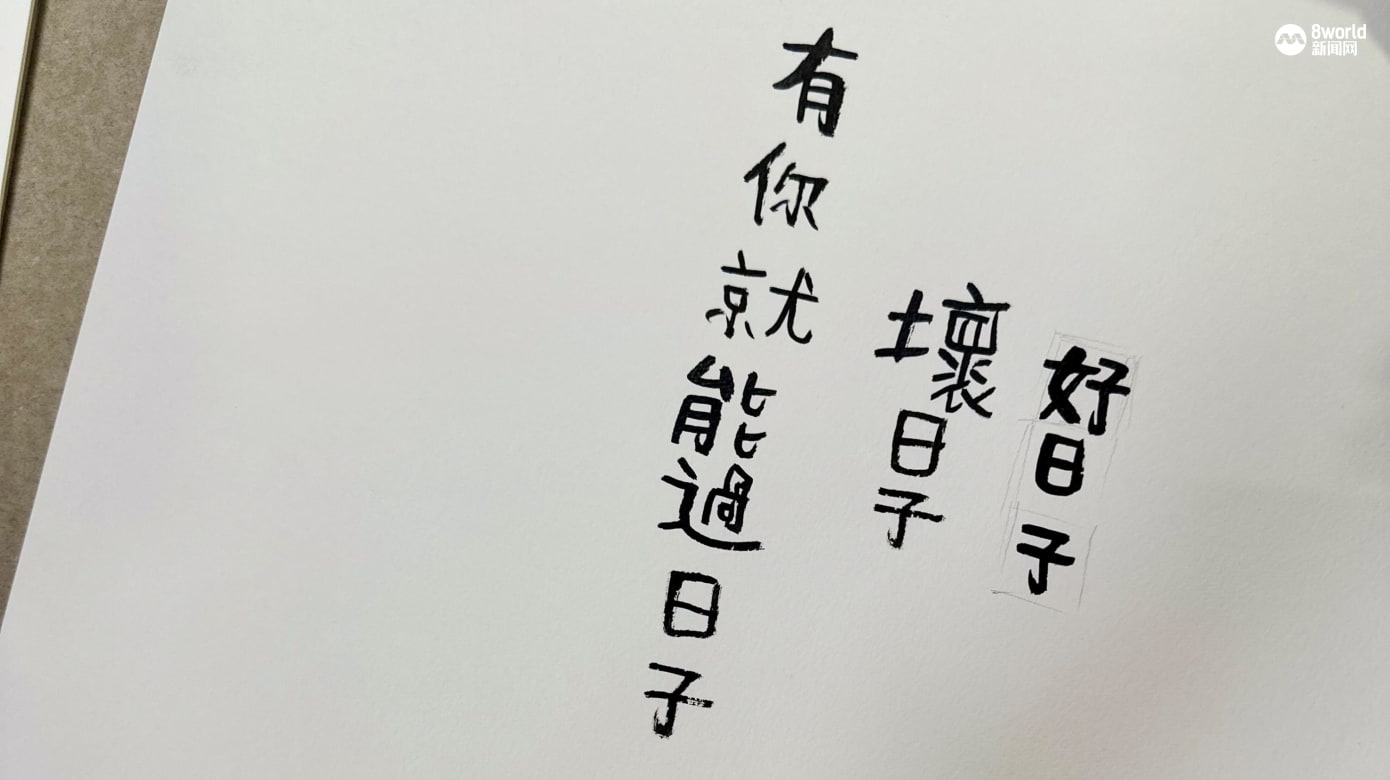 好日子
壞日子
有你就能過日子
8world
新闻网